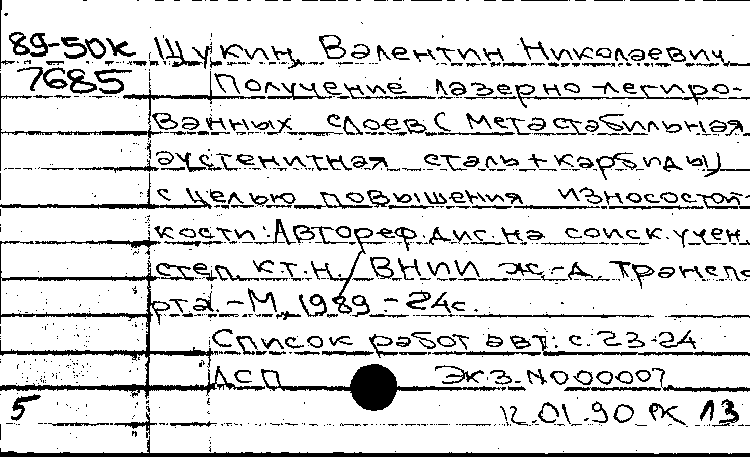 89-50к Щукин, Валентин Николаевич
7685 Получение лазерно-легиро-
ванных слоев (метастабильная
аустенитная сталь+карбиды)
с целью повышения износостой-
кости: Автореф. дис. на соиск. учен.
степ. к.т.н. / ВНИИ ж.-д. транспо
рта. - М., 1989 - 24с.
Список работ авт: с. 23-24
ДСП Экз. N000007
5 12.01.90 РК 13